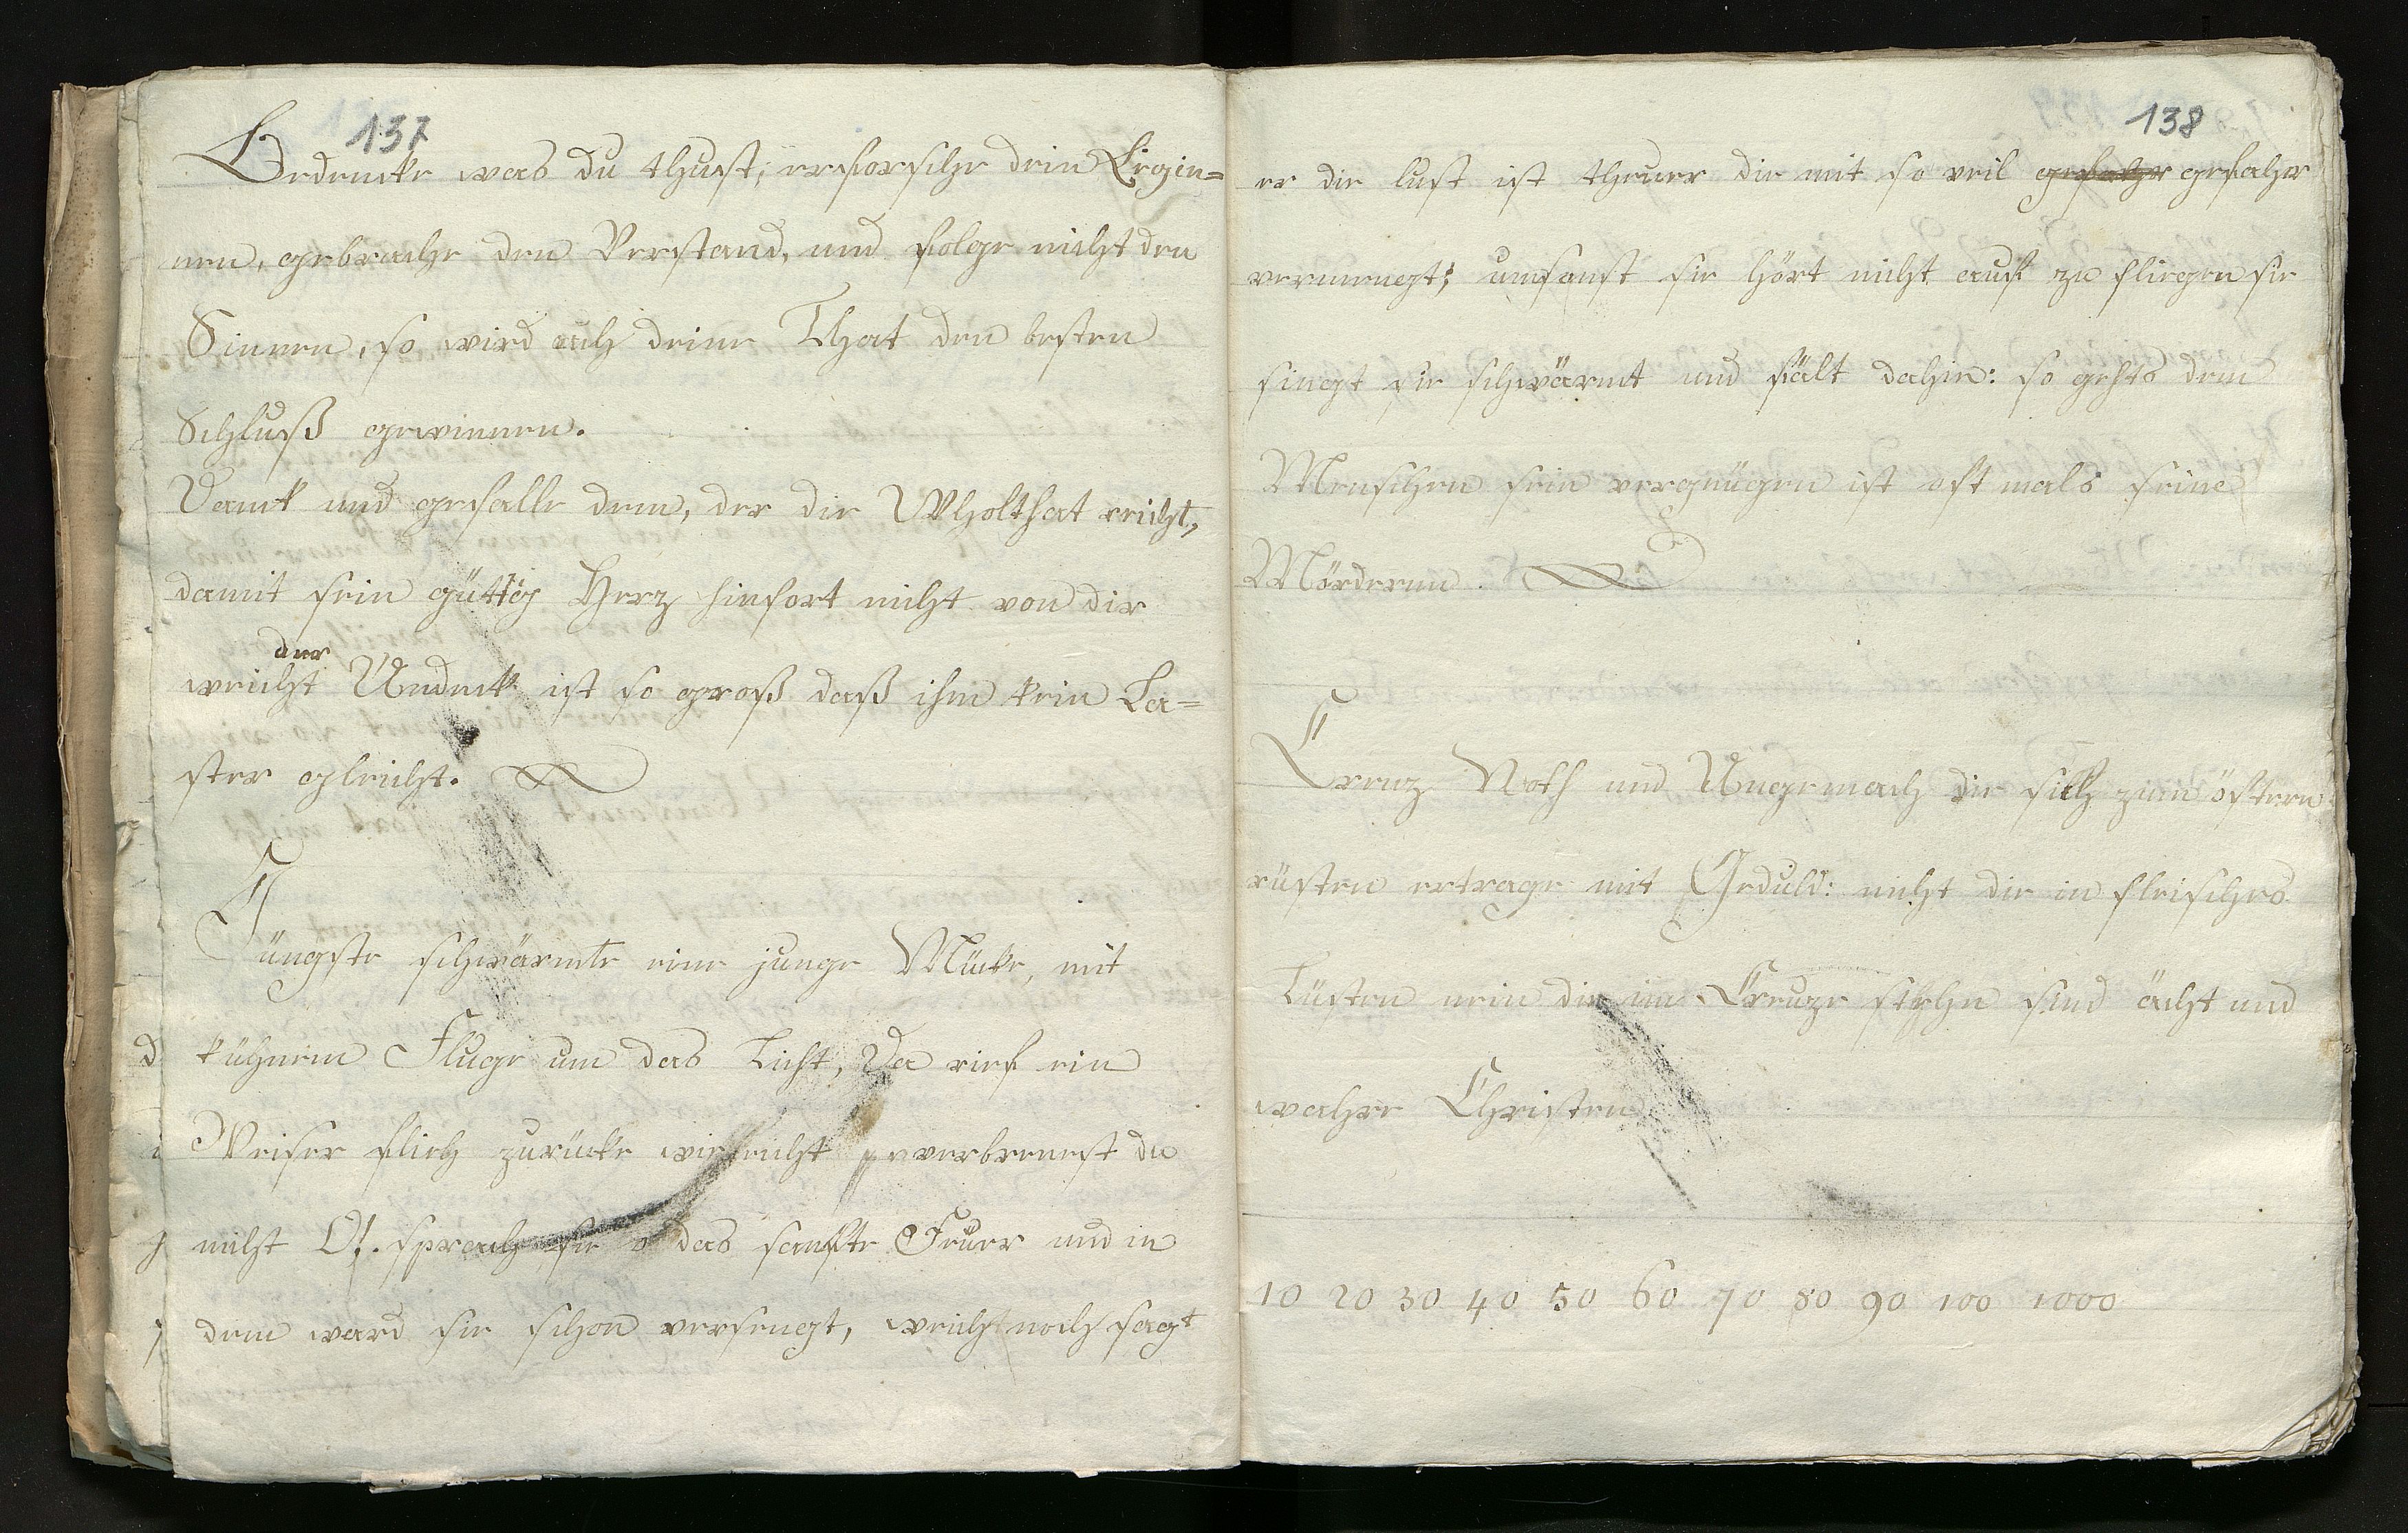 137
Bedencke was du thust; erforsche dein Begin=
nen, gebrache den Verstand, und folge nicht den
Sinnen, so wird auch deine That den besten
Schluß gewinnen.
Danck und gefalle dem, der dir Wholthat reicht,
damit sein güttig Herz hinfort nicht von dir
der
weicht Undack ist so groß daß ihm kein La=
ster gleicht.
Jüngste schwärmte eine junge Mücke, mit
kühnem Fluge um das Licht, Da rief ein
Weiser flieh zurücke vieleicht verbrennest du
nicht O. sprach sie o das sanfte Feüer und in
dem ward sie schon versengt, weich noch sagt
138
er die lust ist theuer die mit so veil gefahr gefahr
vermengt; umsonst sie hört nicht auf zu fliegen sie
singt sie schwärmt und fält dahin: so gehts dem
Menschen sein vergnügen ist oft mals seine
Mörderinn.
Creuz Noth und Ungemach die sich zum öftern
rüsten ertrage mit Geduld: nicht die in fleisches
Lüsten nein die im Creuze stehn sind ächt und
wahre Christen
10 20 30 40 50 60 70 80 90 100 1000